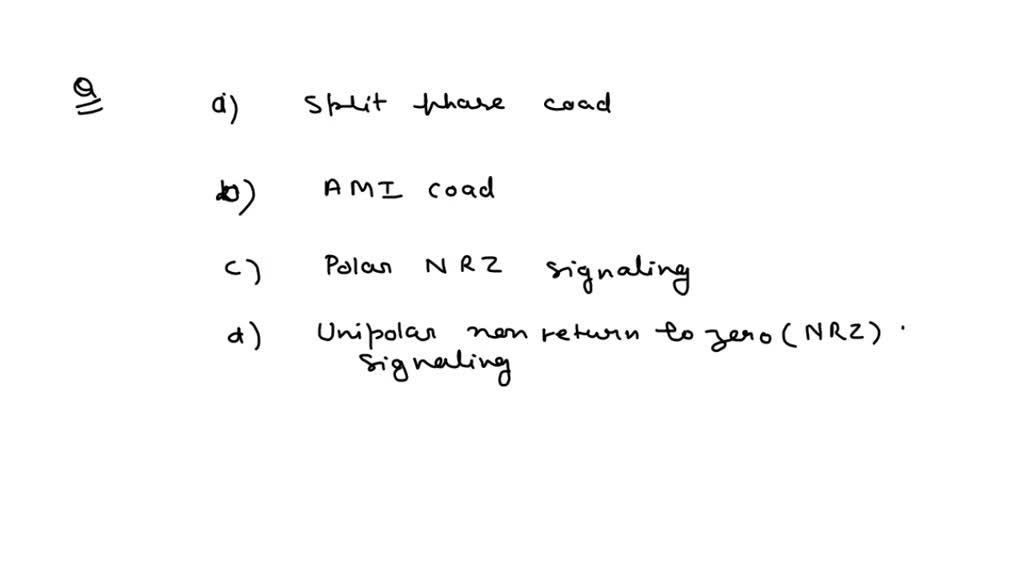 Q a) Split phase coad
b) AMI coad
c) Polar NRZ signaling
d) Unipolar non return to zero (NRZ).
signaling